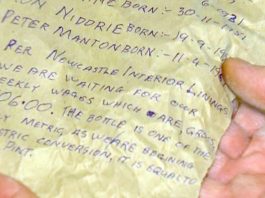 BORN:- 30-11-
RON NIDDRIE BORN:- 19-9-19
PETER MANTON BORN:- 11-4-
PER NEWCASTLE INTERIOR LININGS
WE ARE WAITING FOR OUR
WEEKLY WAGES WHICH ARE, GROSS,
06.00. THE BOTTLE IS ONE OF THE
METRIC, AS WE ARE BEGINING
METRIC CONVERSION, IT IS EQUAL TO
PINT.